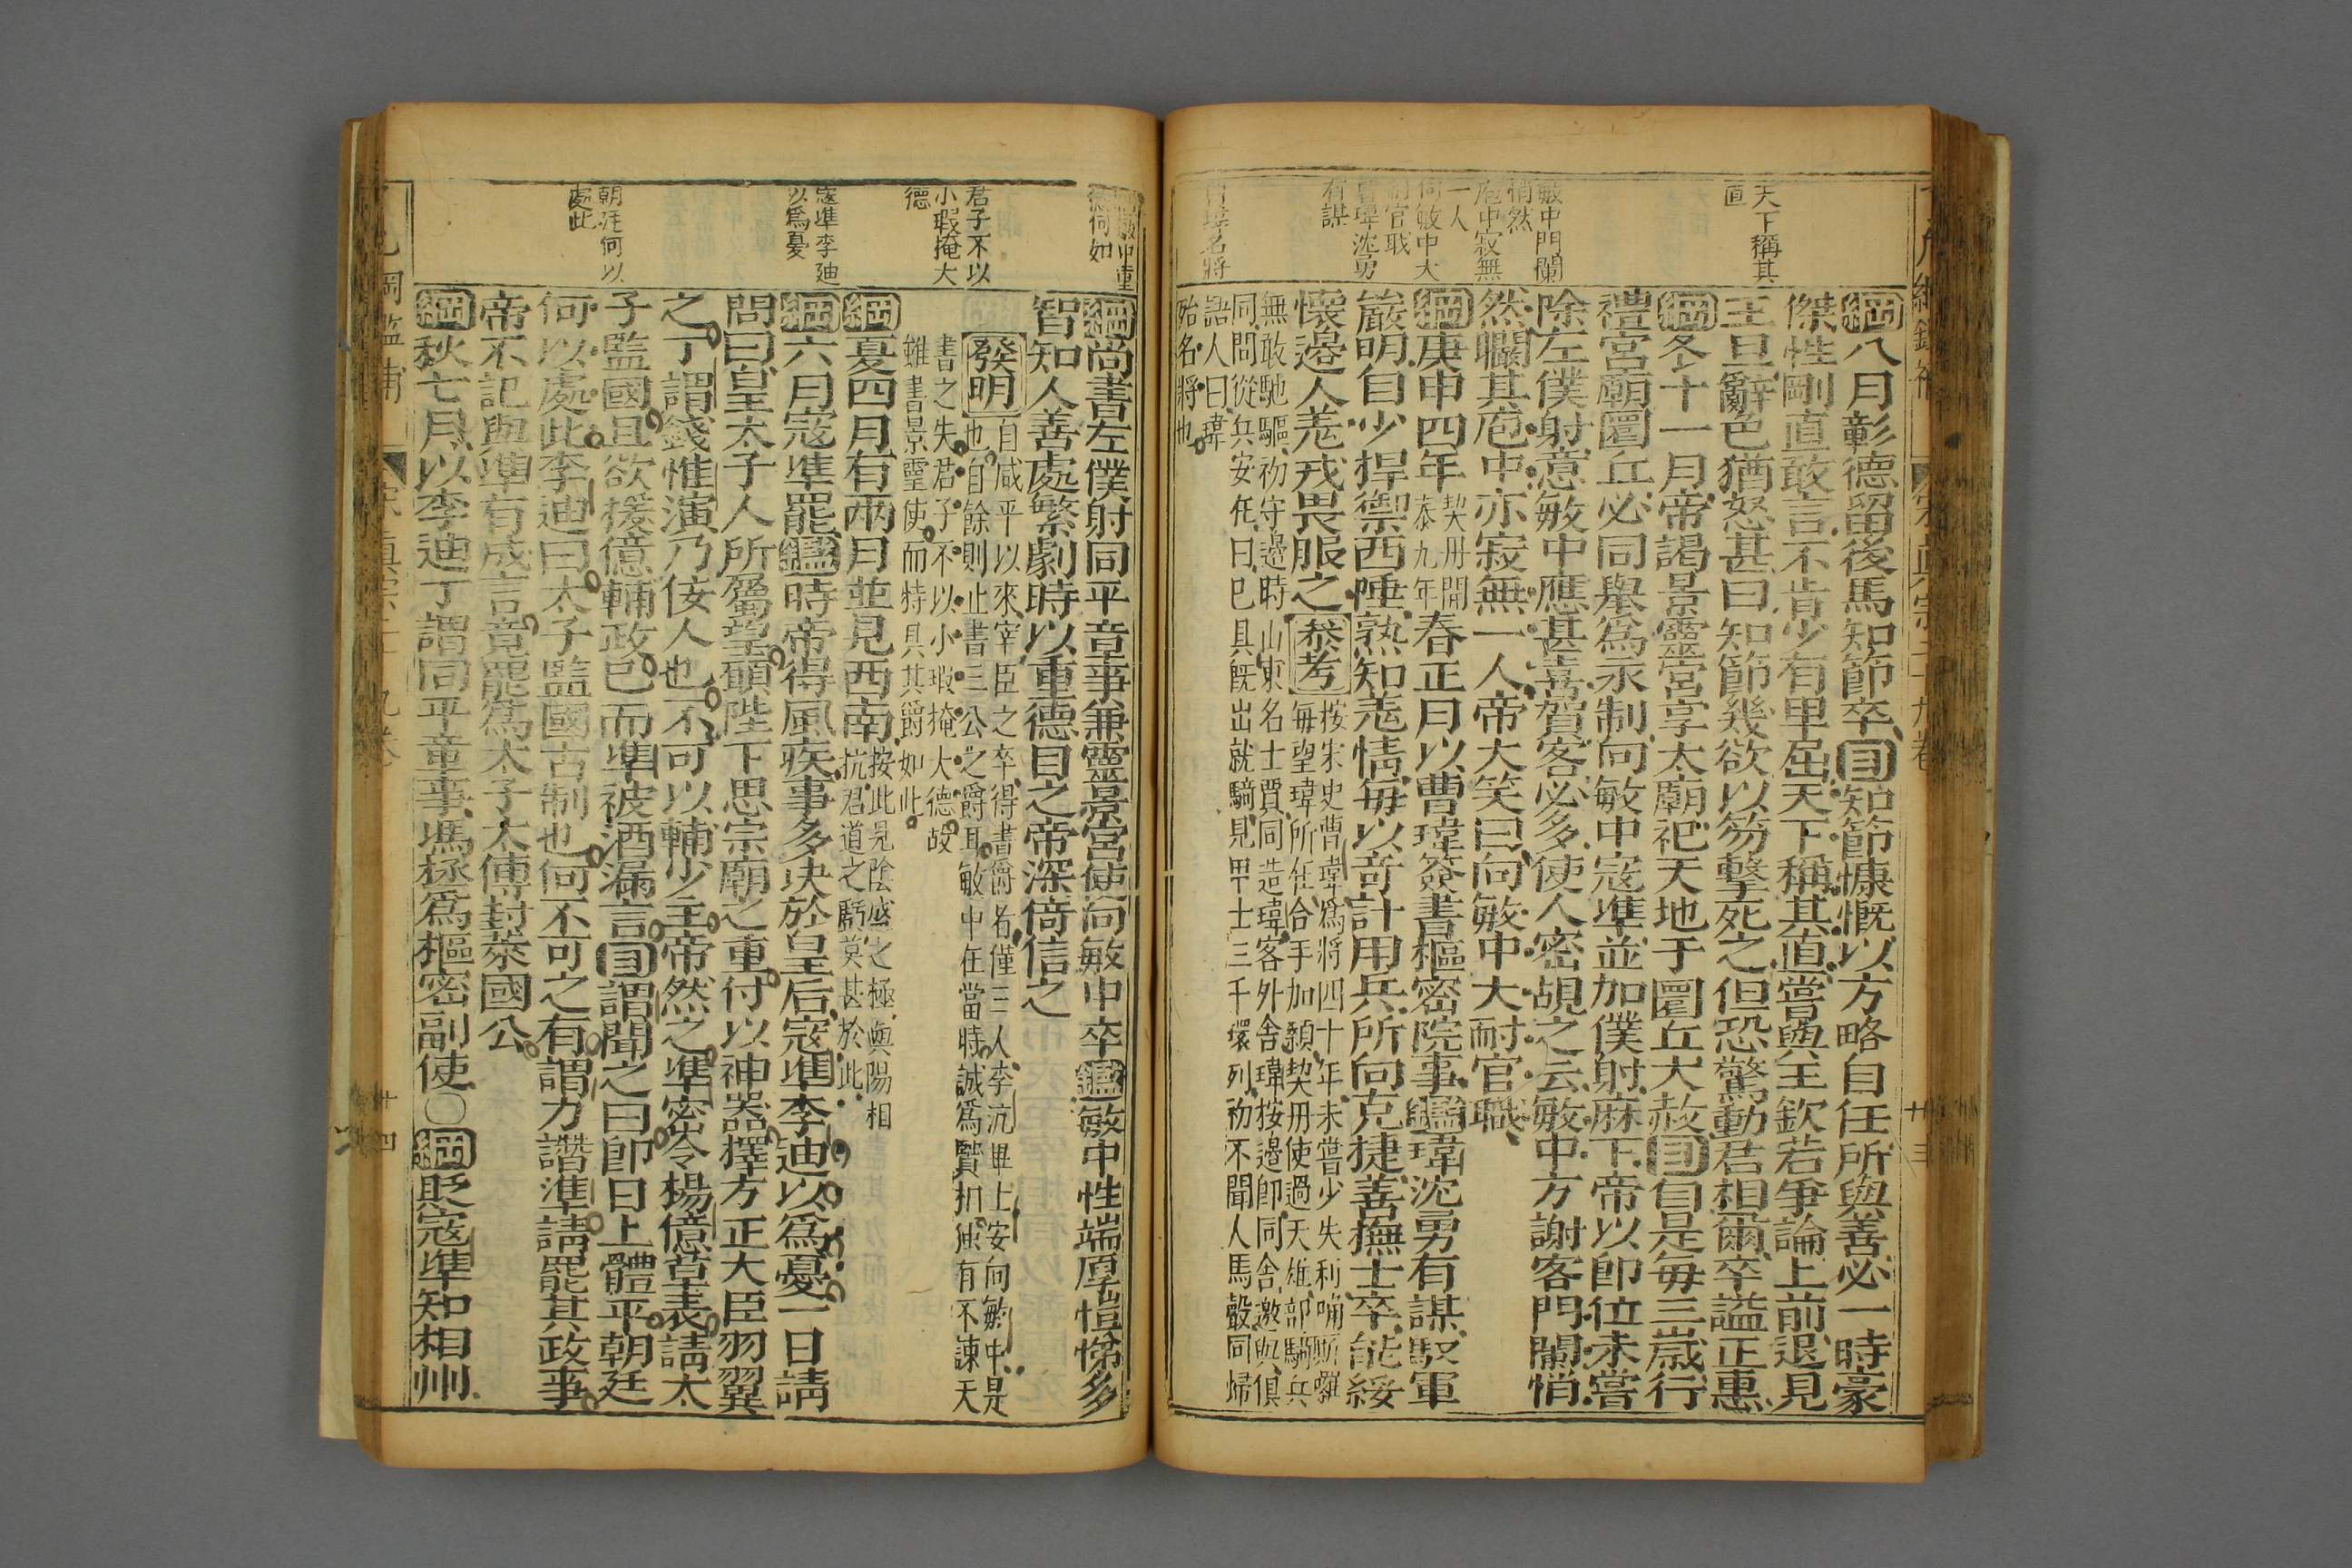 天下稱其
直
敏中門闌
悄然
庖中寂無
一人
向敏中大
耐官職
曹瑋沈勇
有謀
曹瑋名將
綱八月彰德留後馬知節卒目知節慷慨以方略自任所與善必一時豪
傑性剛直敢言不肯少有卑屈天下稱其直嘗與王欽若爭論上前退見
王旦辭色猶怒甚曰知節幾欲以笏擊死之但恐驚動君相爾卒謚正惠
綱冬十一月帝謁景靈宮享太廟祀天地于圜丘大赦目自是每三歲行
禮宮廟圜丘必同舉爲永制向敏中寇準並加僕射麻下帝以即位未嘗
除左僕射意敏中應甚喜賀客必多使人密覘之云敏中方謝客門闌悄
然矙其庖中亦寂無一人帝大笑曰向敏中大耐官職
綱庚申四年契丹開泰九年春正月以曹瑋簽書樞密院事鑑瑋沈勇有謀馭軍
嚴明自少捍禦西陲熟知羌情每以奇計用兵所向克捷善撫士卒能綏
懷邊人羌戎畏服之叅考按宋史曹瑋爲將四十年未嘗少失利唃厮囉
每望瑋所在合手加顙契丹使過天雄部勒兵
無敢馳驅初守邊時山東名士賈同造瑋客外舍瑋按邊即同舍邀與俱
同問從兵安在曰已具旣出就騎見甲士三千環列初不聞人馬聲同歸
語人曰瑋
殆名將也
宋眞宗
向敏中重
德何如
君子不以
小瑕掩大
德
寇準李廸
以爲憂
朝廷何以
處此
綱尚書左僕射同平章事兼靈景宮使向敏中卒鑑敏中性端厚愷悌多
智知人善處繁劇時以重德目之帝深倚信之
發明自咸平以來宰臣之卒得書爵者僅三人李沆畢士安向敏中是
也自餘則止書三公之爵耳敏中在當時誠爲賢相獨有不諫天
書之失君子不以小瑕掩大德故
雖書景靈使而特具其爵如此
綱夏四月有兩月並見西南按此見陰盛之極與陽相
抗君道之虧莫甚於此
綱六月寇準罷鑑時帝得風疾事多決於皇后寇準李迪以爲憂一日請
問曰皇太子人所屬望願陛下思宗廟之重付以神器擇方正大臣羽翼
之丁謂錢惟演乃佞人也不可以輔少主帝然之準密令楊億草表請太
子監國且欲援億輔政已而準被酒漏言目謂聞之曰即日上體平朝廷
何以處此李迪曰太子監國古制也何不可之有謂力譖準請罷其政事
帝不記與準有成言竟罷爲太子太傅封萊國公
綱秋七月以李迪丁謂同平章事馮拯爲樞密副使○綱貶寇準知相州
綱鑑補
宋眞宗
廿四